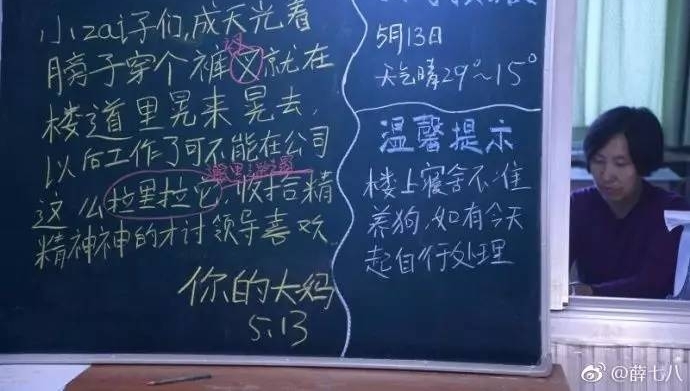 小zai子们,成天光着
膀子穿个裤叉就在
楼道里晃来晃去,
以后工作了可不能在公司
这么拉里拉它,收拾精
精神神的才讨领导喜欢
你的大妈
5.13
5月13日
天气晴29°~15°
温馨提示
楼上寝舍不准
养狗,如有今天
起自行处理
@薛七八